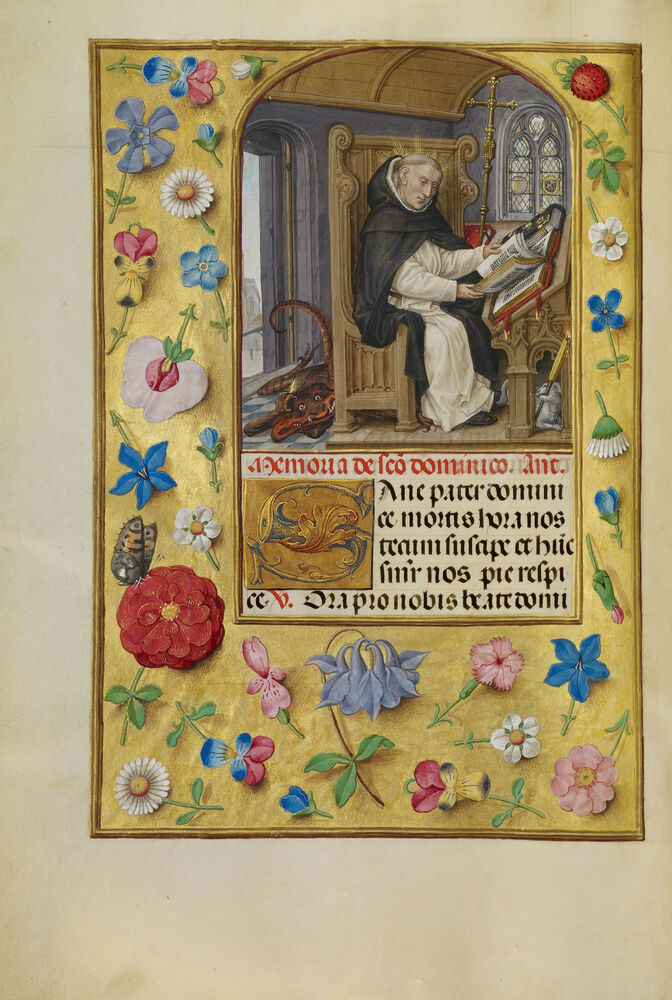 Memoria de scō dominico. Añt.
SAnc pater domini
ce mortis hora nos
tecum suscipe et hūc
smr nos pie respi
ce. V. Ora pro nobis beate domi